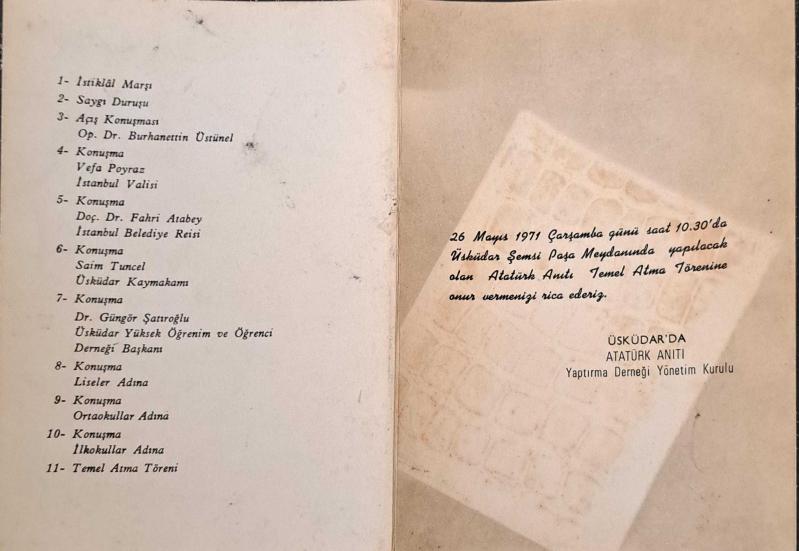 1- İstiklâl Marşı
2- Saygı Duruşu
3- Açış Konuşması
Op. Dr. Burhanettin Üstünel
4- Konuşma
Vefa Poyraz
İstanbul Valisi
5- Konuşma
Doç. Dr. Fahri Atabey
İstanbul Belediye Reisi
6- Konuşma
Saim Tuncel
Üsküdar Kaymakamı
7- Konuşma
Dr. Güngör Şatıroğlu
Üsküdar Yüksek Öğrenim ve Öğrenci
Derneği Başkanı
8- Konuşma
Liseler Adına
9- Konuşma
Ortaokullar Adına
10- Konuşma
İlkokullar Adına
11- Temel Atma Töreni
26 Mayıs 1971 Çarşamba günü saat 10.30'da
Üsküdar Şemsi Paşa Meydanında yapılacak
olan Atatürk Anıtı Temel Atma Törenine
onur vermenizi rica ederiz.
ÜSKÜDAR'DA
ATATÜRK ANITI
Yaptırma Derneği Yönetim Kurulu